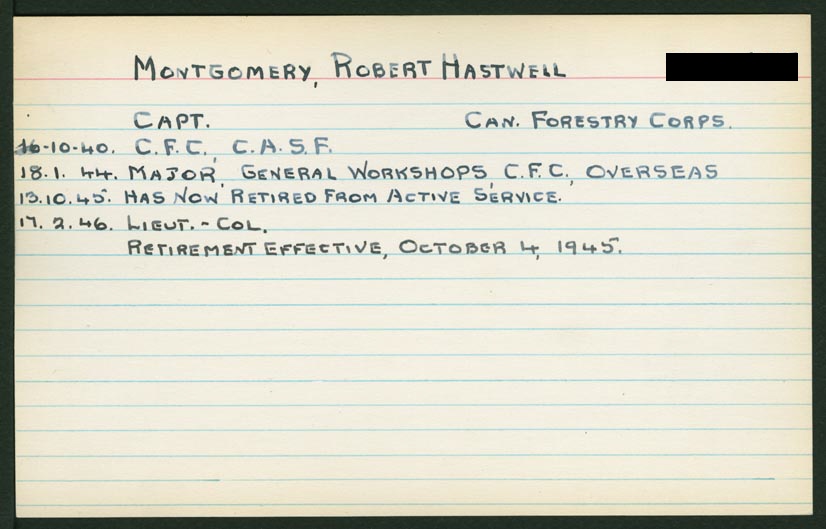 MONTGOMERY, ROBERT HASTWELL
CAPT. CAN. FORESTRY CORPS.
16-10-40. C.F.C., C.A.S.F.
18.1.44. MAJOR, GENERAL WORKSHOPS, C.F.C., OVERSEAS
13.10.45. HAS NOW RETIRED FROM ACTIVE SERVICE.
17.2.46. LIEUT.-COL.
RETIREMENT EFFECTIVE, OCTOBER 4, 1945.